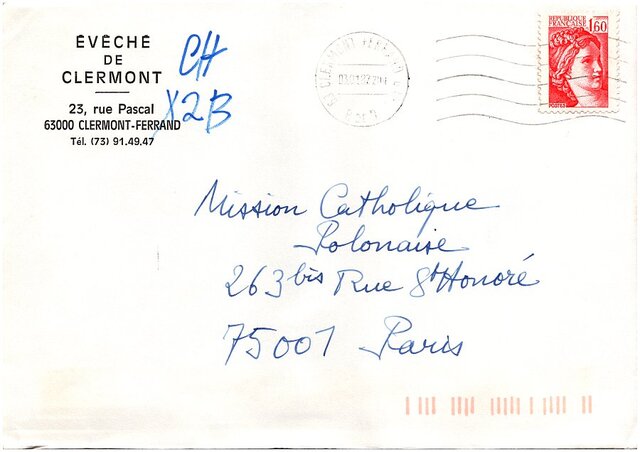 ÉVÊCHÉ
DE
CLERMONT
23, rue Pascal
63000 CLERMONT-FERRAND
Tél. (73) 91.49.47
CH
X2B
CLERMONT-FERRAND
REPUBLIQUE
FRANÇAISE
1,60
POSTES
Mission Catholique
Polonaise
263 bis Rue St Honoré
75001 Paris